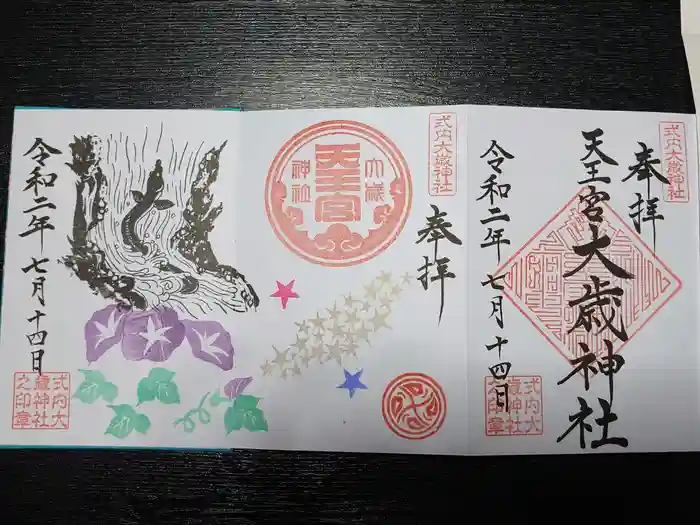 式内大歳神社
奉拝
天王宮大歳神社
令和二年七月十四日
式内大
歳神社
之印章
式内大歳神社
奉拝
天王宮
大歳
神社
令和二年七月十四日
式内大
歳神社
之印章